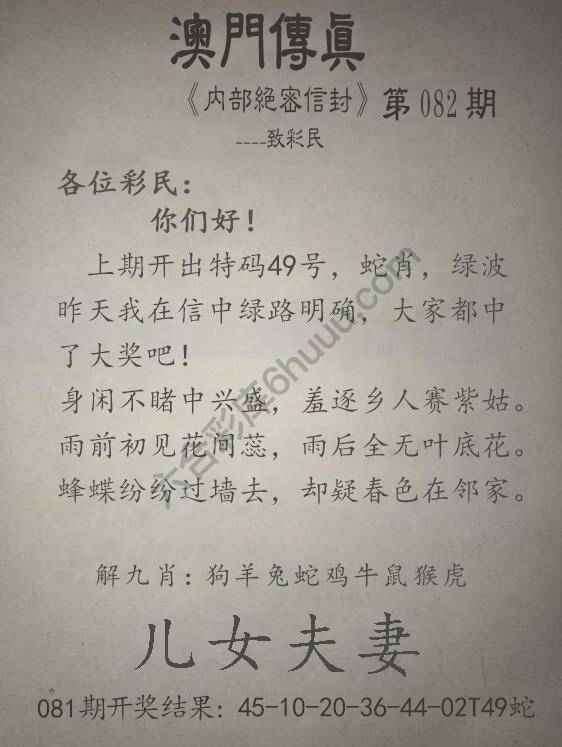 澳門傳眞
《内部絕密信封》第082期
----致彩民
各位彩民：
你们好！
上期开出特码49号，蛇肖，绿波
昨天我在信中绿路明确，大家都中
了大奖吧！
身闲不睹中兴盛，羞逐乡人赛紫姑。
雨前初见花间蕊，雨后全无叶底花。
蜂蝶纷纷过墙去，却疑春色在邻家。
六合彩库6huuu.com
解九肖：狗羊兔蛇鸡牛鼠猴虎
儿女夫妻
081期开奖结果：45-10-20-36-44-02T49蛇